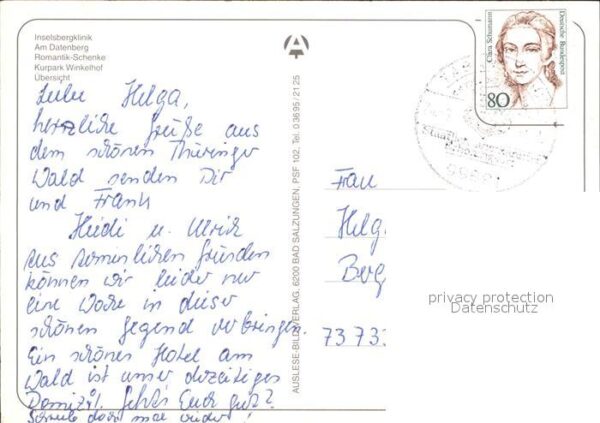 Inselsbergklinik
Am Datenberg
Romantik-Schenke
Kurpark Winkelhof
Übersicht
Liebe Helga,
herzliche Grüße aus
dem schönen Thüringer
Wald senden Dir
und Frank
Heidi u. Ulrich
Aus terminlichen Gründen
können wir leider nur
eine Woche in dieser
schönen Gegend verbringen.
Ein schönes Hotel am
Wald ist unser derzeitiges
Domizil. Geht's Euch gut?
Schreib doch mal wieder!
AUSLESE-BILD-VERLAG, 6200 BAD SALZUNGEN, PSF 102, Tel. 0 36 95 / 21 25
Clara Schumann
Deutsche Bundespost
80
Frau
Helg
Berg
7373
privacy protection
Datenschutz